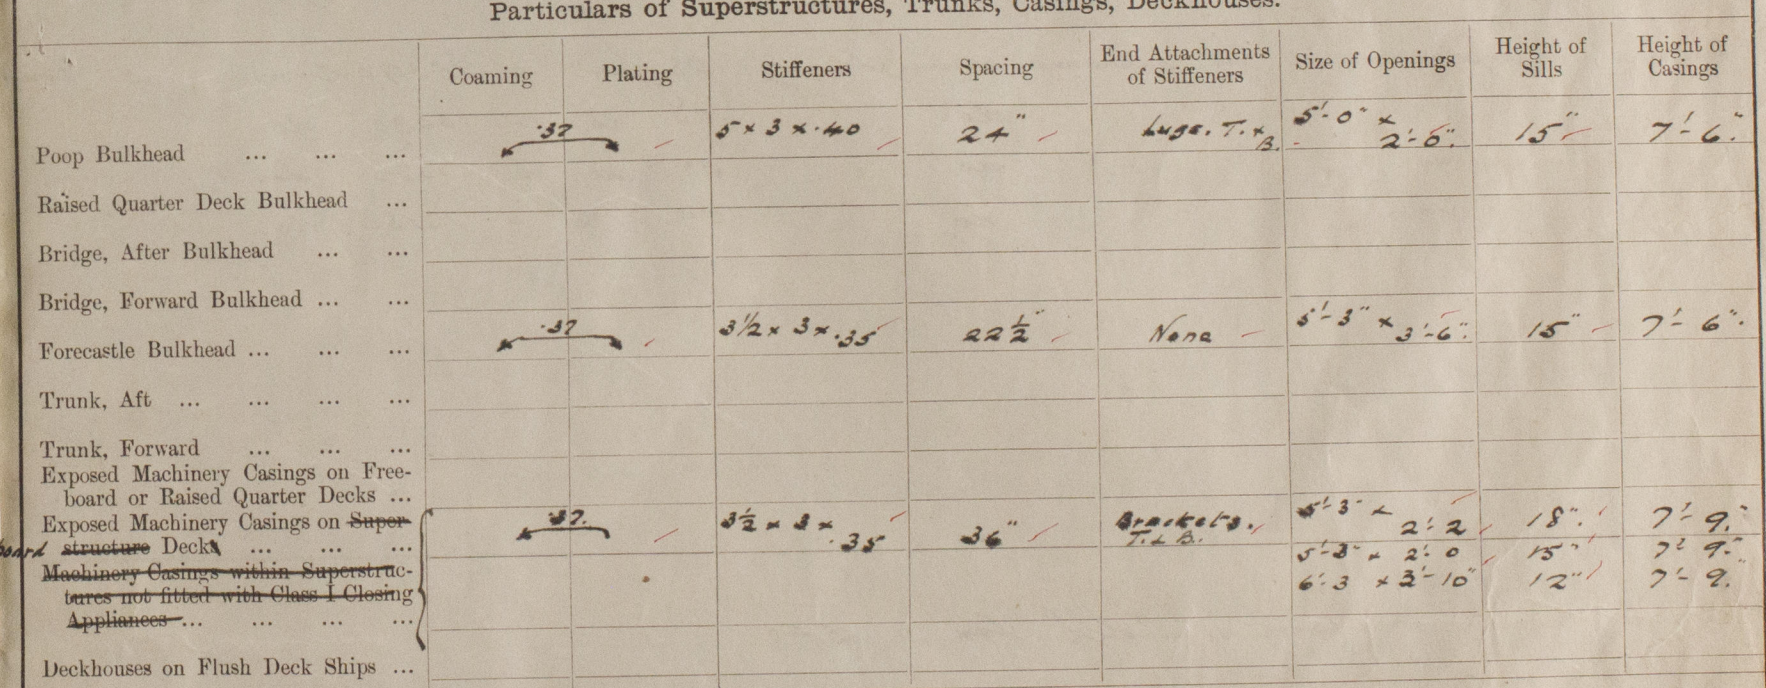 Particulars of Superstructures, Trunks, Casings, Deckhouses.
Coaming Plating Stiffeners Spacing End Attachments of Stiffeners Size of Openings Height of Sills Height of Casings
Poop Bulkhead ... ... ... .37 5 x 3 x .40 24" Lugs. T. & B. 5'-0" x 2'-0". 15" 7'-6".
Raised Quarter Deck Bulkhead ...
Bridge, After Bulkhead ... ...
Bridge, Forward Bulkhead ... ...
Forecastle Bulkhead ... ... ... .37 3 1/2 x 3 x .35 22 1/2" None 5'-3" x 3'-6". 15" 7'-6".
Trunk, Aft ... ... ... ...
Trunk, Forward ... ... ...
Exposed Machinery Casings on Free-
board or Raised Quarter Decks ...
Exposed Machinery Casings on Super- .37. 3 1/2 x 3 x .35 36" Brackets. T. & B. 5'-3" x 2'-2 18". 7'-9."
board structure Decks ... ... ... 5'-3" x 2'-0 15" 7'-9."
Machinery Casings within Superstruc- 6'-3 x 3'-10" 12" 7'-9."
tures not fitted with Class I Closing
Appliances ... ... ...
Deckhouses on Flush Deck Ships ...